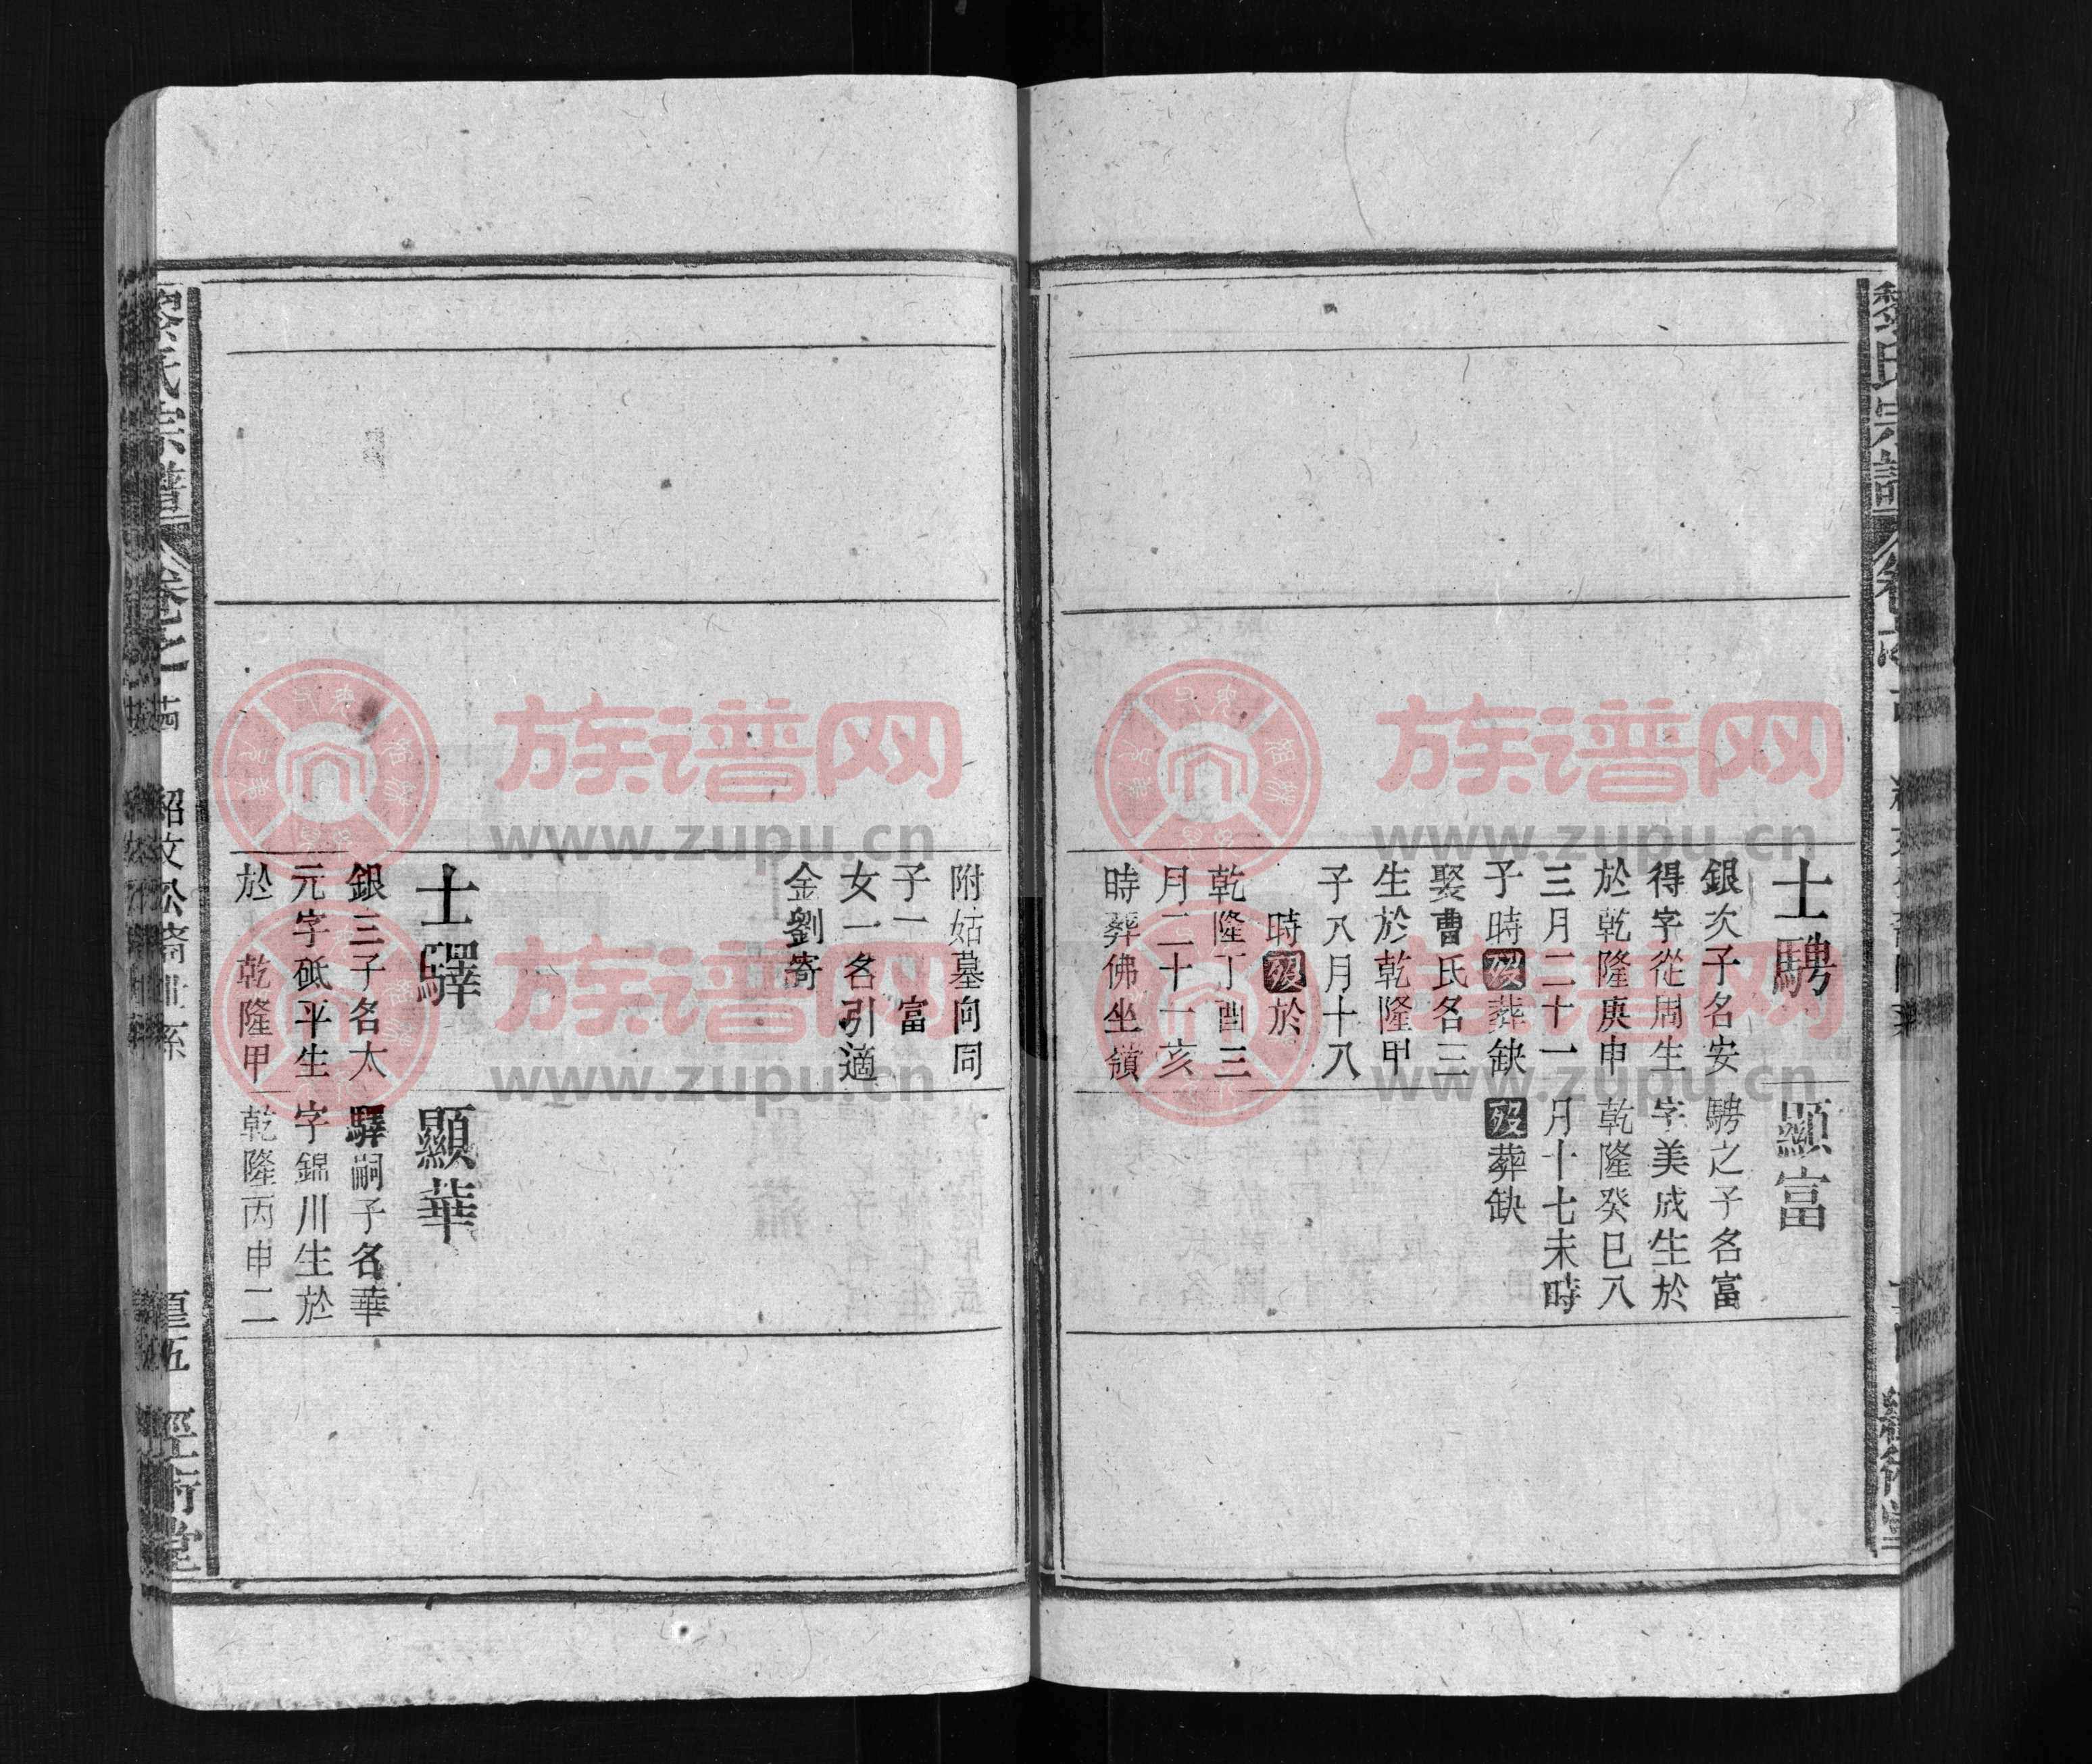 士騁
銀次子名安
得字從周生
於乾隆庚申
三月二十一
子時歿葬缺
娶曹氏名三
生於乾隆甲
子八月十八
時歿於
乾隆丁酉三
月二十一亥
時葬佛坐嶺
顯富
騁之子名富
字美成生於
乾隆癸巳八
月十七未時
歿葬缺
附姑墓向同
子一 富
女一名引適
金劉寄
士驛
銀三子名太
元字砥平生
於 乾隆甲
顯華
驛嗣子名華
字錦川生於
乾隆丙申二
族谱网
www.zupu.cn
族谱网
www.zupu.cn
族谱网
www.zupu.cn
族谱网
www.zupu.cn